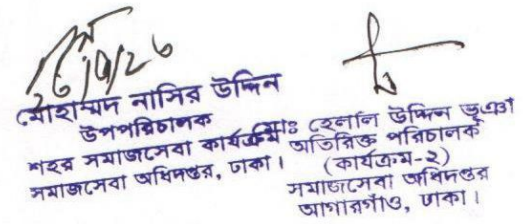 মোহাম্মদ নাসির উদ্দিন
উপপরিচালক
শহর সমাজসেবা কার্যক্রম
সমাজসেবা অধিদপ্তর, ঢাকা।
মোঃ হেলাল উদ্দিন ভূঞা
অতিরিক্ত পরিচালক
(কার্যক্রম-২)
সমাজসেবা অধিদপ্তর
আগারগাঁও, ঢাকা।